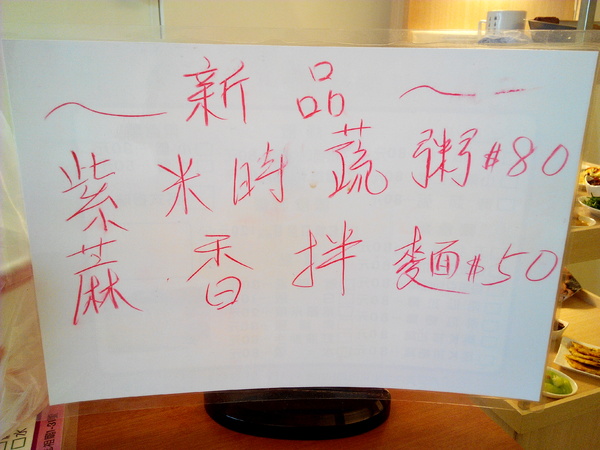 ～新品～
紫米時蔬粥#80
蔴香拌麵$50